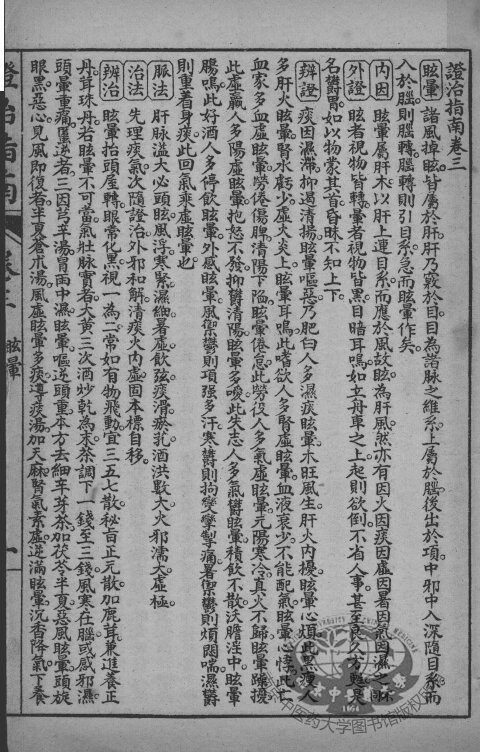 證治指南卷三
眩暈 諸風掉眩皆屬於肝肝乃竅於目目為諸脉之維系上屬於腦後出於項中邪中人深隨目系而
入於腦則腦轉腦轉則引目系急而眩暈作矣
內因 眩暈屬肝木以肝上連目系而應於風故眩為肝風然亦有因火因痰因虛因暑因氣因濕之
外證 眩者視物皆轉暈者視物皆黑目暗耳鳴如立舟車之上起則欲倒不省人事甚至良久方甦
名鬱冒如以物蒙其首昏昧不知上下
辨證 痰因濕滯抑遏清揚眩暈嘔惡乃肥白人多濕痰眩暈木旺風生肝火內擾眩暈心煩此黑瘦人
多肝火眩暈腎水虧少虛火炎上眩暈耳鳴此嗜欲人多腎虛眩暈血液衰少不能配氣眩暈心悸此亡
血家多血虛眩暈勞倦傷脾清陽下陷眩暈倦怠此勞役人多氣虛眩暈元陽寒冷真火不歸眩暈躁擾
此虛羸人多陽虛眩暈抱怒不發抑鬱清陽眩暈多唉此失志人多氣鬱眩暈積飲不散沃膽淫中眩暈
腸鳴此好酒人多停飲眩暈外感眩暈風襲鬱則項强多汗寒鬱則拘攣掣痛暑襲鬱則煩悶喘濕鬱
則重着身痰此回氣乘虛眩暈也
脈法 肝脉溢大必頭眩風浮寒緊濕細暑虛飲弦痰滑瘀芤酒洪數大火邪濡大虛極
治法 先理痰氣次隨證治外邪和解清痰火內虛固本標自移
辨治 眩暈抬頭屋轉眼常化黑視一為二常如有物飛動宜三五七散秘旨正元散加鹿茸兼進養正
丹茸珠丹若眩暈不可當氣壯脉實者大黃三次酒炒乾為末茶調下一錢至三錢風寒在腦或感邪濕
頭暈重痛厥逆者三因芎辛湯冒雨中濕眩暈嘔逆頭重本方去細辛芽茶加茯苓半夏惡風眩暈頭旋
眼黑惡心見風即復者半夏蒼朮湯風虛眩暈多痰導痰湯加天麻腎氣素虛逆滿眩暈沉香降氣下養
眩暈
一